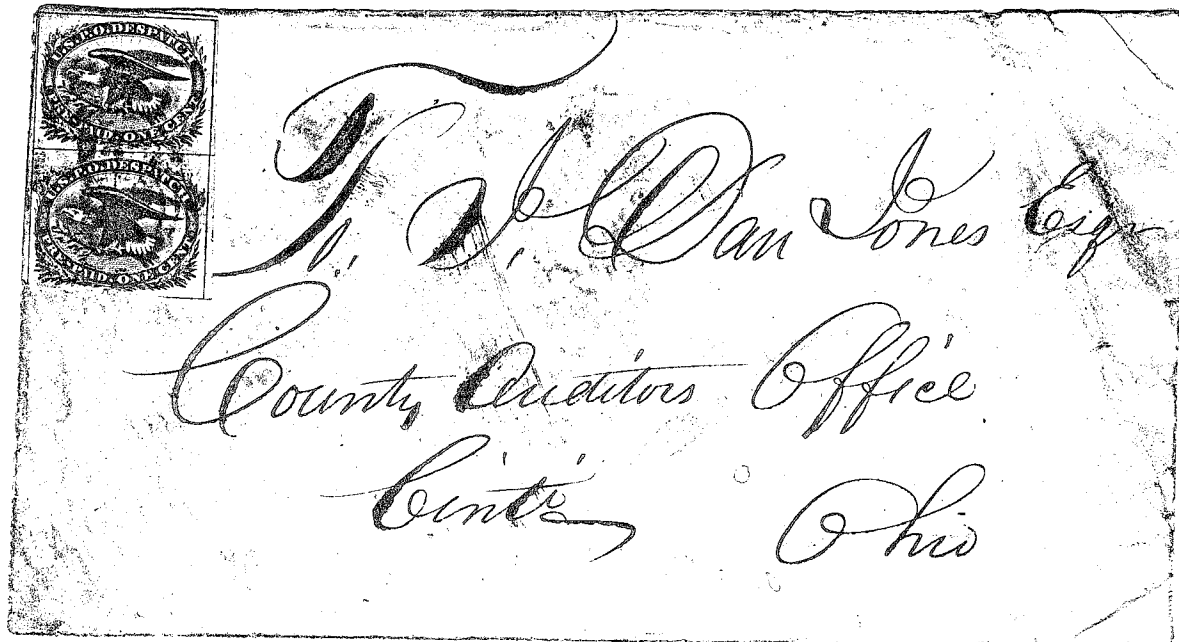 U.S.P.O. DESPATCH
PRE-PAID. ONE CENT.
U.S.P.O. DESPATCH
PRE-PAID. ONE CENT.
Dan Jones Esqr
County Auditors Office
Cinti
Ohio